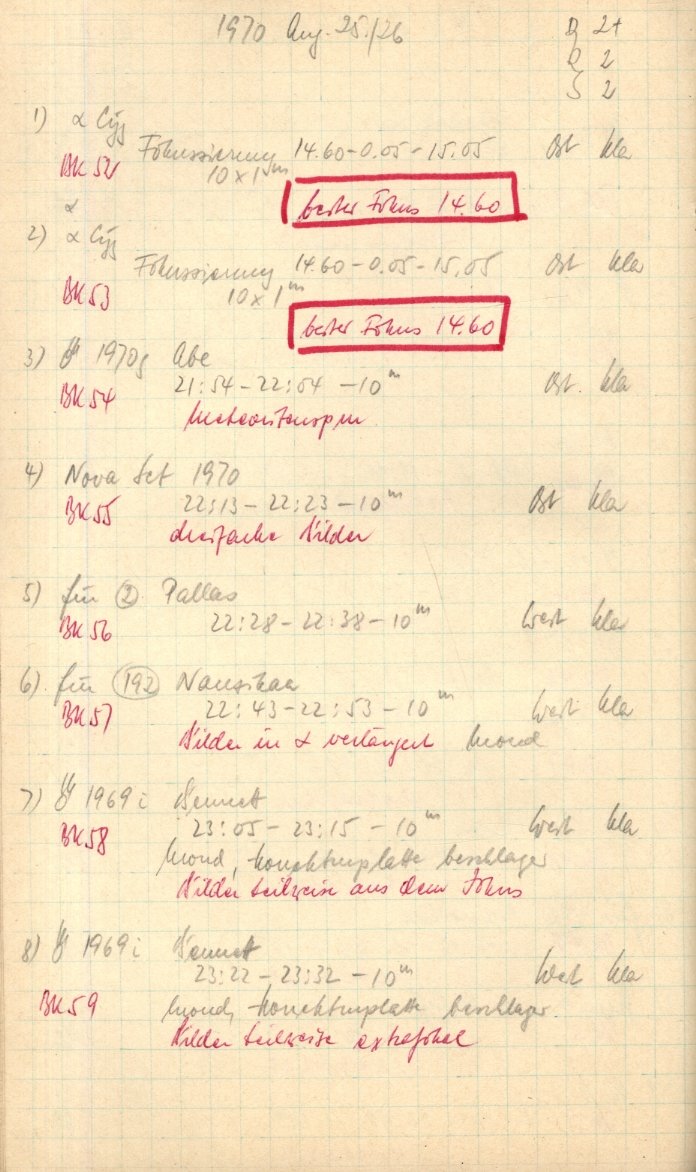 1970 Aug. 25./26
D 2+
R 2
S 2
1) α Cyg
BK 52 Fokussierung 14.60-0.05-15.05 Ost kla
10 x 1m
bester Fokus 14.60
α
2) α Cyg
Fokussierung 14.60-0.05-15.05 Ost kla
BK 53 10 x 1m
bester Fokus 14.60
3) 1970g Abe
BK 54 21:54-22:04 -10m Ost. kla
Meteoritenspur
4) Nova Sct 1970
BK 55 22:13-22:23-10m Ost kla
dreifache Bilder
5) für (2) Pallas
BK 56 22:28-22:38-10m West kla
6) für (192) Nausikaa
BK 57 22:43-22:53-10m West kla
Bilder in α verlängert Mond
7) 1969 i Bennett
BK 58 23:05-23:15-10m West kla
Mond, beschlagen
Bilder teilweise aus dem Fokus
8) 1969 i Bennett
23:22-23:32-10m West kla
BK 59 Mond, beschlagen
Bilder teilweise extrafokal